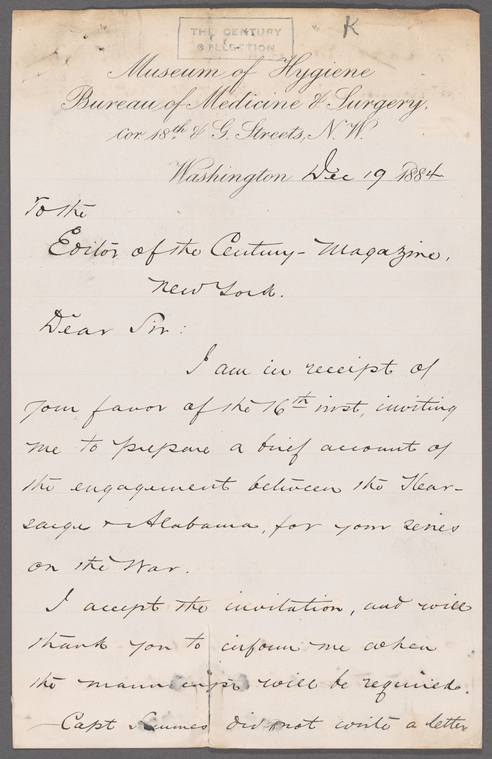 THE CENTURY
COLLECTION
K
Museum of Hygiene
Bureau of Medicine & Surgery,
Cor 18th & G. Streets, N. W.
Washington Dec 19 1884
To the
Editor of the Century-Magazine,
New York.
Dear Sir:
I am in receipt of
your favor of the 16th inst, inviting
me to prepare a brief account of
the engagement between the Kear-
sarge & Alabama, for your series
on the War.
I accept the invitation, and will
thank you to inform me when
the manuscript will be required.
Capt Semmes did not write a letter